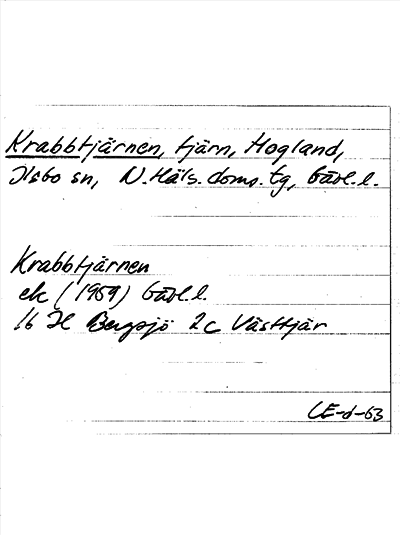 Krabbtjärnen, tjärn, Hogland,
Ilsbo sn, N. Häls. doms. tg, Gävl. l.
Krabbtjärnen
ek (1959) Gävl. l.
16 H Bergsjö 2c Västtjär
LE-d-63